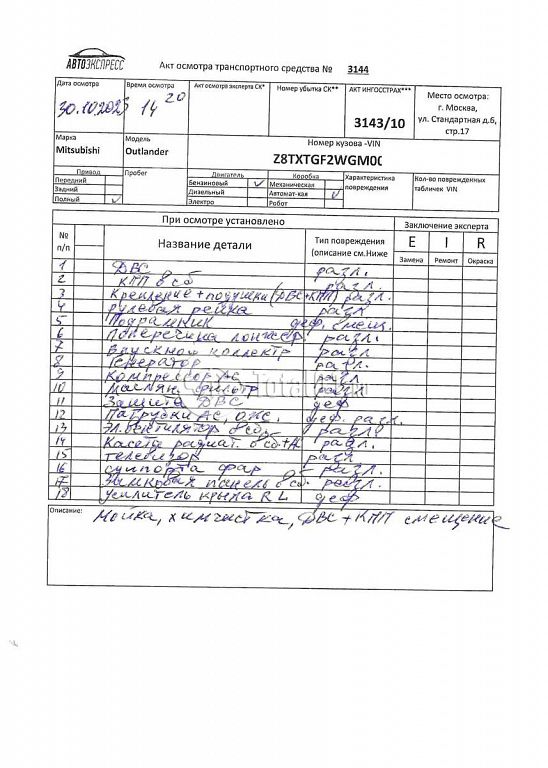 АВТОЭКСПРЕСС
Акт осмотра транспортного средства № 3144
Дата осмотра
30.10.2023
Время осмотра
14 20
Акт осмотра эксперта СК*
Номер убытка СК**
АКТ ИНГОССТРАХ***
3143/10
Место осмотра:
г. Москва,
ул. Стандартная д.6,
стр.17
Марка
Mitsubishi
Модель
Outlander
Номер кузова -VIN
Z8TXTGF2WGM0
Привод
Передний
Задний
Полный ✓
Пробег
Двигатель
Бензиновый ✓
Дизельный
Электро
Коробка
Механическая
Автомат-кая ✓
Робот
Характеристика
повреждения
Кол-во поврежденных
табличек VIN
При осмотре установлено
Заключение эксперта
№
п/п
Название детали
Тип повреждения
(описание см.Ниже
E I R
Замена Ремонт Окраска
1 ДВС разл.
2 КПП в сб разл.
3 Крепление + подушки (ДВС+КПП) разл.
4 рулевая рейка разл
5 Подрамник деф, смещ.
6 Поперечина лонжер. разл.
7 Впускной коллектр разл
8 Генератор разл.
9 Компрессор АС разл
10 Маслян. фильтр разл.
11 Защита ДВС деф
12 Патрубки АС, ОЖ. деф. разл.
13 Эл.вентилятор в сб. разл.
14 Касета радиат. в сб+А разл.
15 телевизор разл
16 суппорта фар разл.
17 панель в сб. разл.
18 Усилитель крыла R L деф
Описание:
Мойка, химчистка, ДВС + КПП смещение